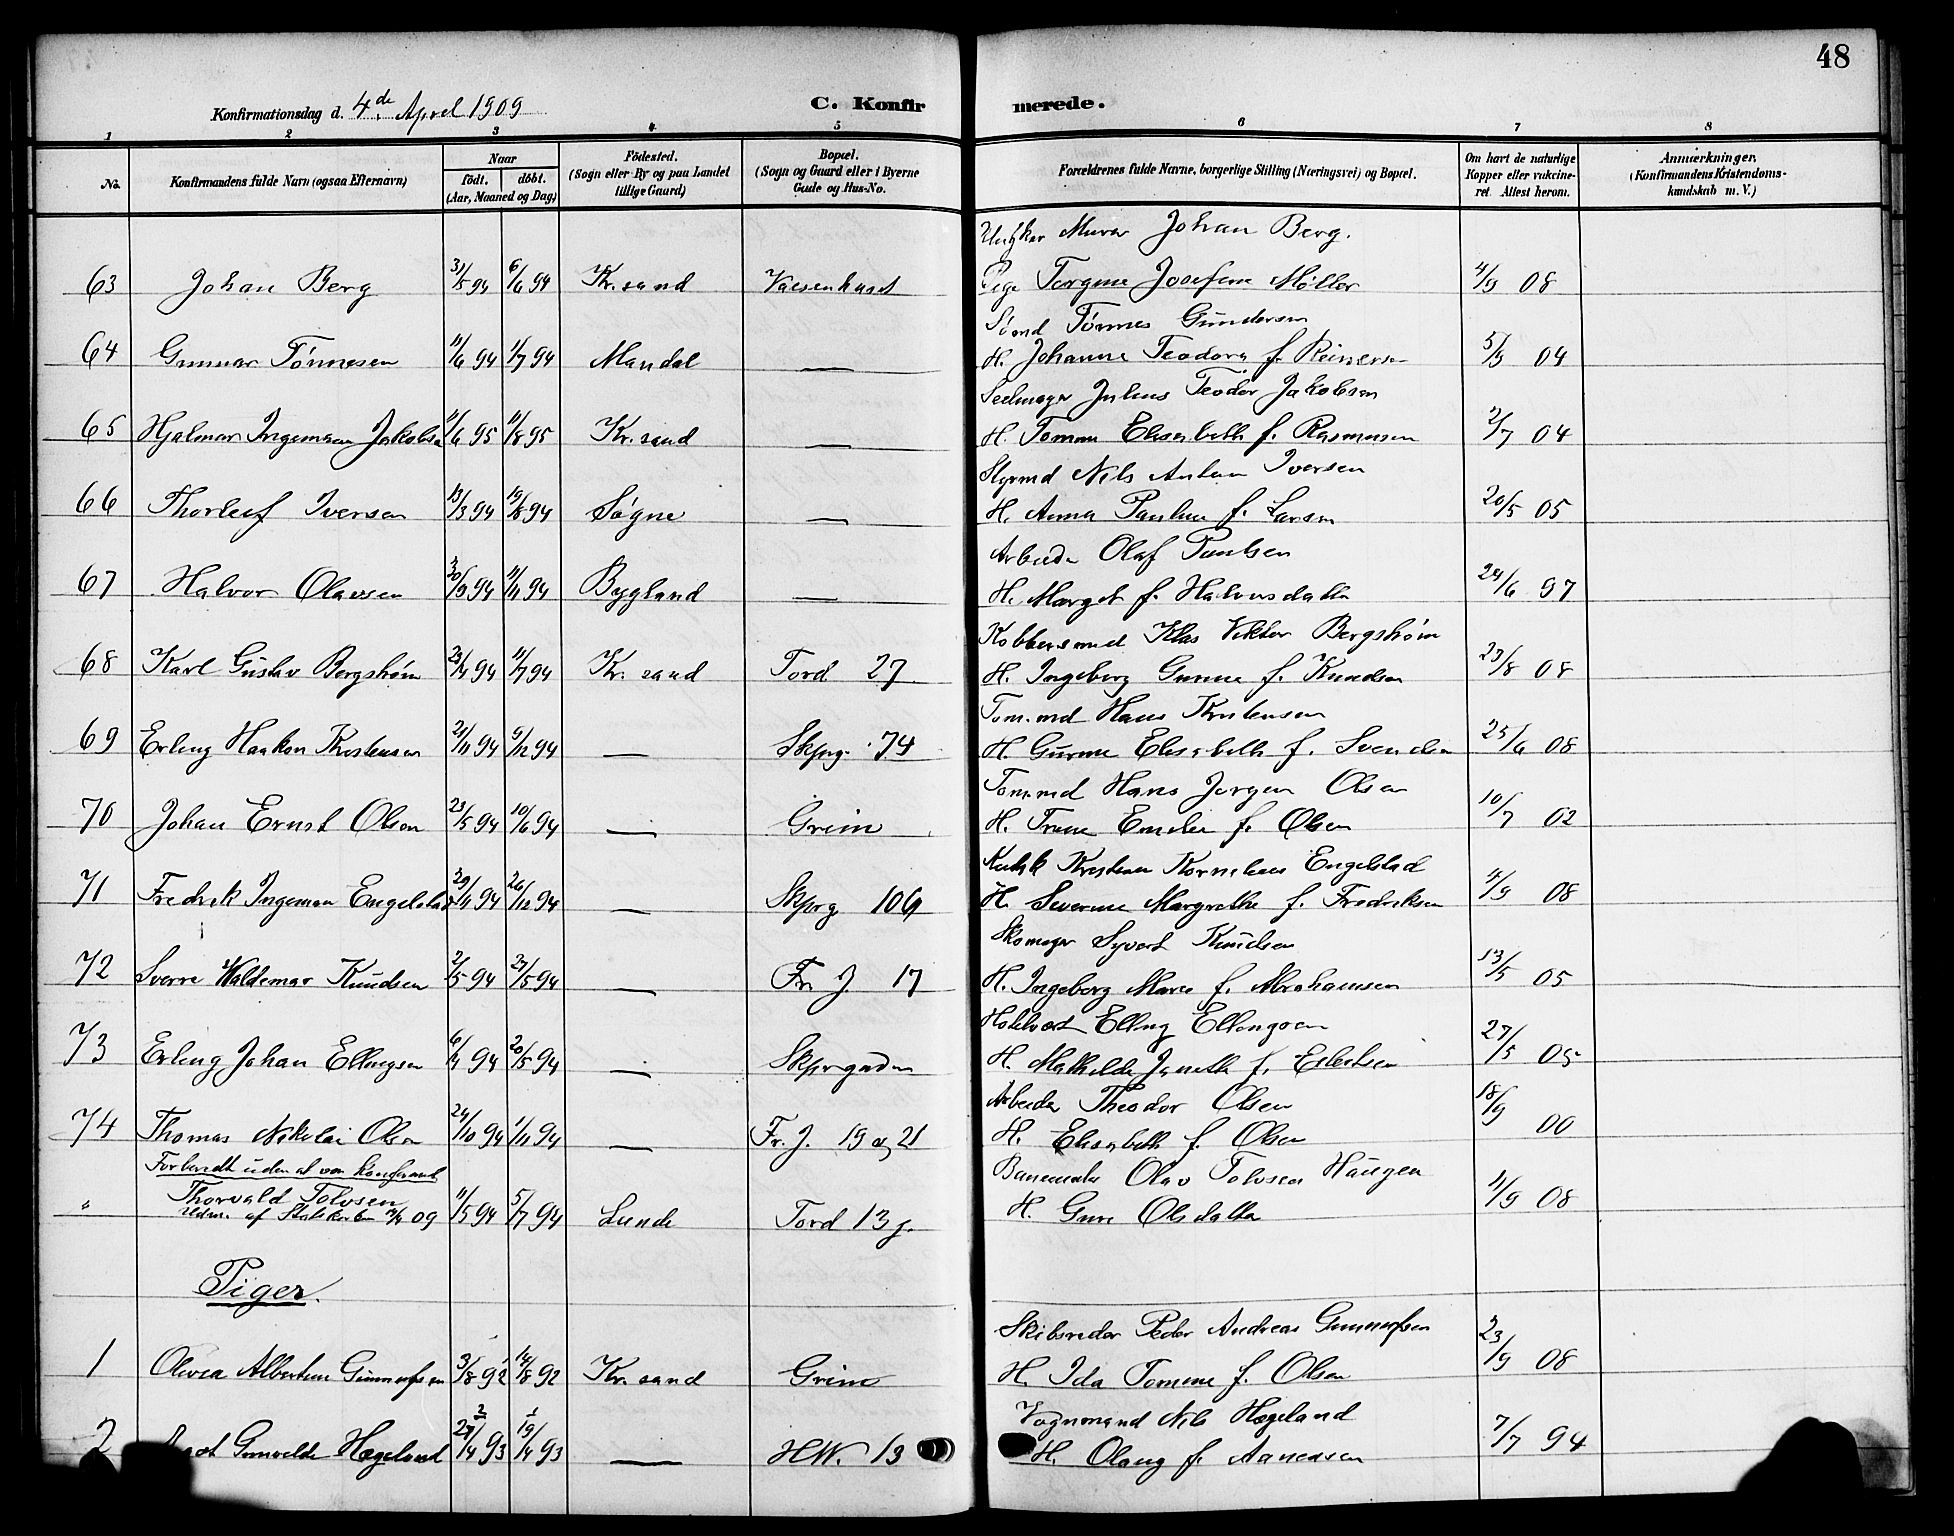 48
Konfirmationsdag d. 4de April 1909
C. Konfirmerede.
1 2 3 4 5 6 7 8
No. Konfirmandens fulde Navn (ogsaa Efternavn) Naar født. døbt. (Aar, Maaned og Dag) Fødested. (Sogn eller By og paa Landet tillige Gaard) Bopæl. (Sogn og Gaard eller i Byerne Gade og Hus-No.
Forældrenes fulde Navne, borgerlige Stilling (Næringsvei) og Bopæl. Om havt de naturlige Kopper eller vaccineret. Attest herom. Anmærkninger. (Konfirmandens Kristendomskundskab m. V.)
Murer Johan Berg.
63 Johan Berg 31/5 94 6/6 94 Kr.sand Vaesenhuset Pige Torgine Josefine Møller 4/9 08
Sømd Tønnes Gundersen
64 Gunnar Tønnesen 11/6 94 1/7 94 Mandal — H. Johanne Teodora f. Reinersen 5/9 04
Seelmager Julius Teodor Jakobsen
65 Hjalmar Ingeman Jakobsen 11/6 95 11/8 95 Kr.sand — H. Tomine Elisabeth f. Rasmusen 2/7 04
Styrmd Nils Anton Iversen
66 Thorleif Iversen 13/3 94 19/8 94 Søgne — H. Anna Pauline f. Larsen 20/5 05
Arbeider Olaf Paulsen
67 Halvor Olavsen 30/9 94 11/11 94 Bygland — H. Marget f. Halvorsdatter 24/6 97
Kobbersmed Klas Viktor Bergstrøm
68 Karl Gustav Bergstrøm 23/4 94 11/7 94 Kr.sand Tord 27 H. Ingeborg Gurine f. Knudsen 23/8 08
Tom.md Hans Kristensen
69 Erling Haakon Kristensen 21/11 94 9/12 94 — Skprg. 74 H. Gurine Elisabeth f. Svendsen 25/6 08
Tom.md Hans Jørgen Olsen
70 Johan Ernst Olsen 23/5 94 10/6 94 — Grim H. Trine Emelie f. Olsen 10/7 02
Kudsk Kristian Kornelius Engelstad
71 Fredrik Ingeman Engelstad 29/11 94 26/12 94 — Skprg 106 H. Severine Margrethe f. Fredriksen 4/9 08
Skomager Syvert Knudsen
72 Sverre Waldemar Knudsen 2/5 94 27/5 94 — Fr. J. 17 H. Ingeborg Marie f. Abrahamsen 13/5 05
Elling Ellingsen
73 Erling Johan Ellingsen 6/4 94 20/5 94 — Skprgaden H. Mathilde Janette f. Eilertsen 27/5 05
Arbeider Theodor Olsen
74 Thomas Nikolai Olsen 24/10 94 1/11 94 — Fr. J. 19 og 21 H. Elisabeth f. Olsen 18/9 00
Forberedt uden at være konfirmeret Olav Tolvsen Haugen
" Thorvald Tolvsen 11/5 94 5/7 94 Lunde Tord 13 j. H. Guro Olsdatter 11/9 08
Udm. af Statskirken 09
Piger.
Skibsreder Peder Andreas Gunnufsen
1 Olivia Albertine Gunnufsen 3/8 92 14/8 92 Kr.sand Grim H. Ida Tomine f. Olsen 23/9 08
Vognmand Nils Hægeland
2 Gunvelde Hægeland 2 1 27/4 93 19/4 93 — H.W. 13 H. Olaug f. Aanensen 7/7 94